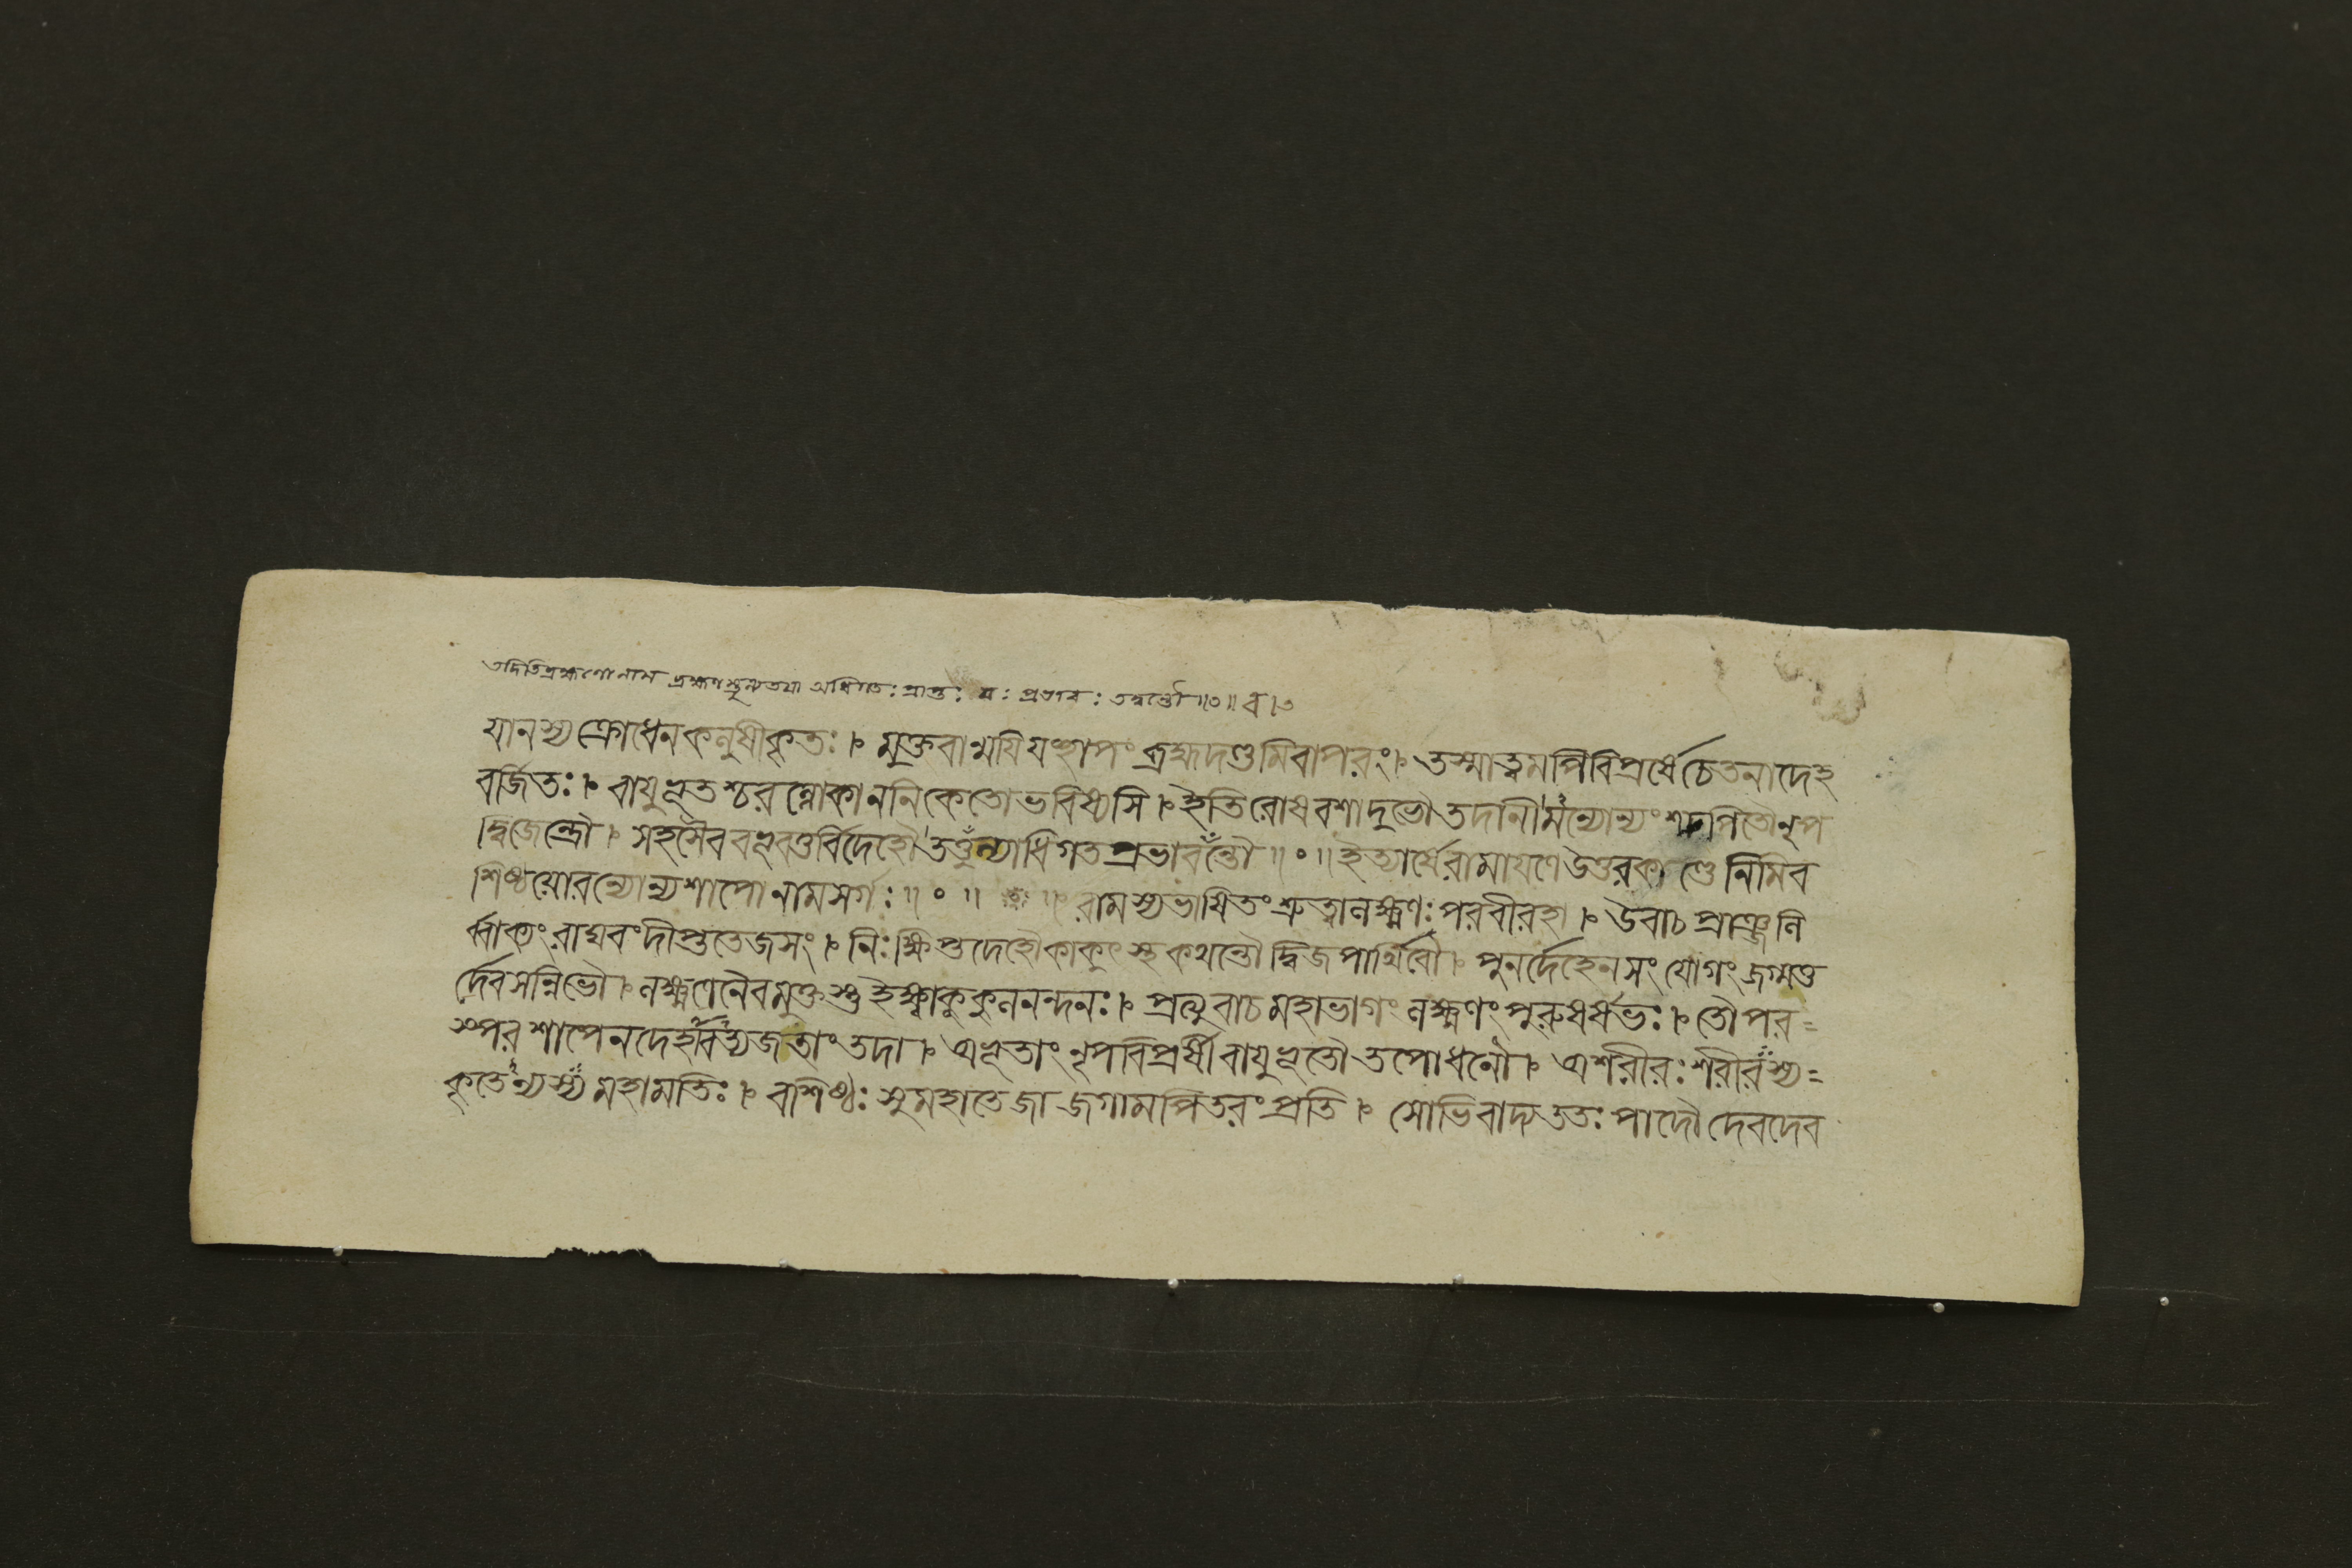 তদিতিব্রহ্মণোনাম ব্রহ্মণস্তুল্যতযা অধিগতঃ প্রাপ্তঃ যঃ প্রভাবঃ তদ্বন্তৌ ॥০॥ ব।০
যানস্যক্রোধেনকলুষীকৃতঃ। মুক্তবান্ময়িযংশাপং ব্রহ্মদণ্ডমিবাপরং। তস্মাত্ত্বমপিবিপ্রর্ষেচেতনাদেহ
বর্জিতঃ। বায়ুভূতশ্চরন্লোকাননিকেতোভবিষ্যসি। ইতিরোষবশাদুভৌতদানীমন্যোন্যংশপিতৌনৃপ
দ্বিজেন্দ্রৌ। সহসৈববভূবতুর্বিদেহৌতত্তুল্যাধিগতপ্রভাববন্তৌ॥০॥ ইত্যার্ষেরামাযণেউত্তরকাণ্ডেনিমিব
শিষ্ঠয়োরন্যোন্যশাপোনামসর্গঃ॥০॥ ॥ রামস্যভাষিতংশ্রুত্বালক্ষ্মণঃপরবীরহা। উবাচপ্রাঞ্জলি
র্ব্বাক্যংরাঘবংদীপ্ততেজসং। নিঃক্ষিপ্তদেহৌকাকুৎস্থকথন্তৌদ্বিজপার্থিবৌ। পুনর্দেহেনসংযোগংজগ্মতু
র্দেবসন্নিভৌ। লক্ষ্মণেনৈবমুক্তস্তুইক্ষ্বাকুকুলনন্দনঃ। প্রত্যুবাচমহাভাগংলক্ষ্মণংপুরুষর্ষভঃ। তৌপর=
স্পরশাপেনদেহাবত্যজতাংতদা। অভূতাংনৃপবিপ্রর্ষীবায়ুভূতৌতপোধনৌ। অশরীরঃশরীরস্য=
কৃতেন্যস্যমহামতিঃ। বশিষ্ঠঃসুমহাতেজাজগামপিতরংপ্রতি। সোভিবাদ্যততঃপাদৌদেবদেব